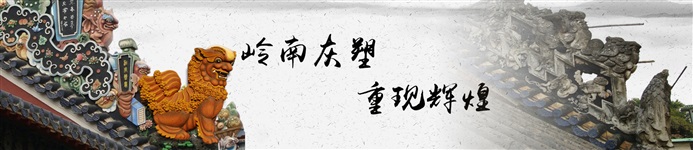 岭南灰塑
重现辉煌